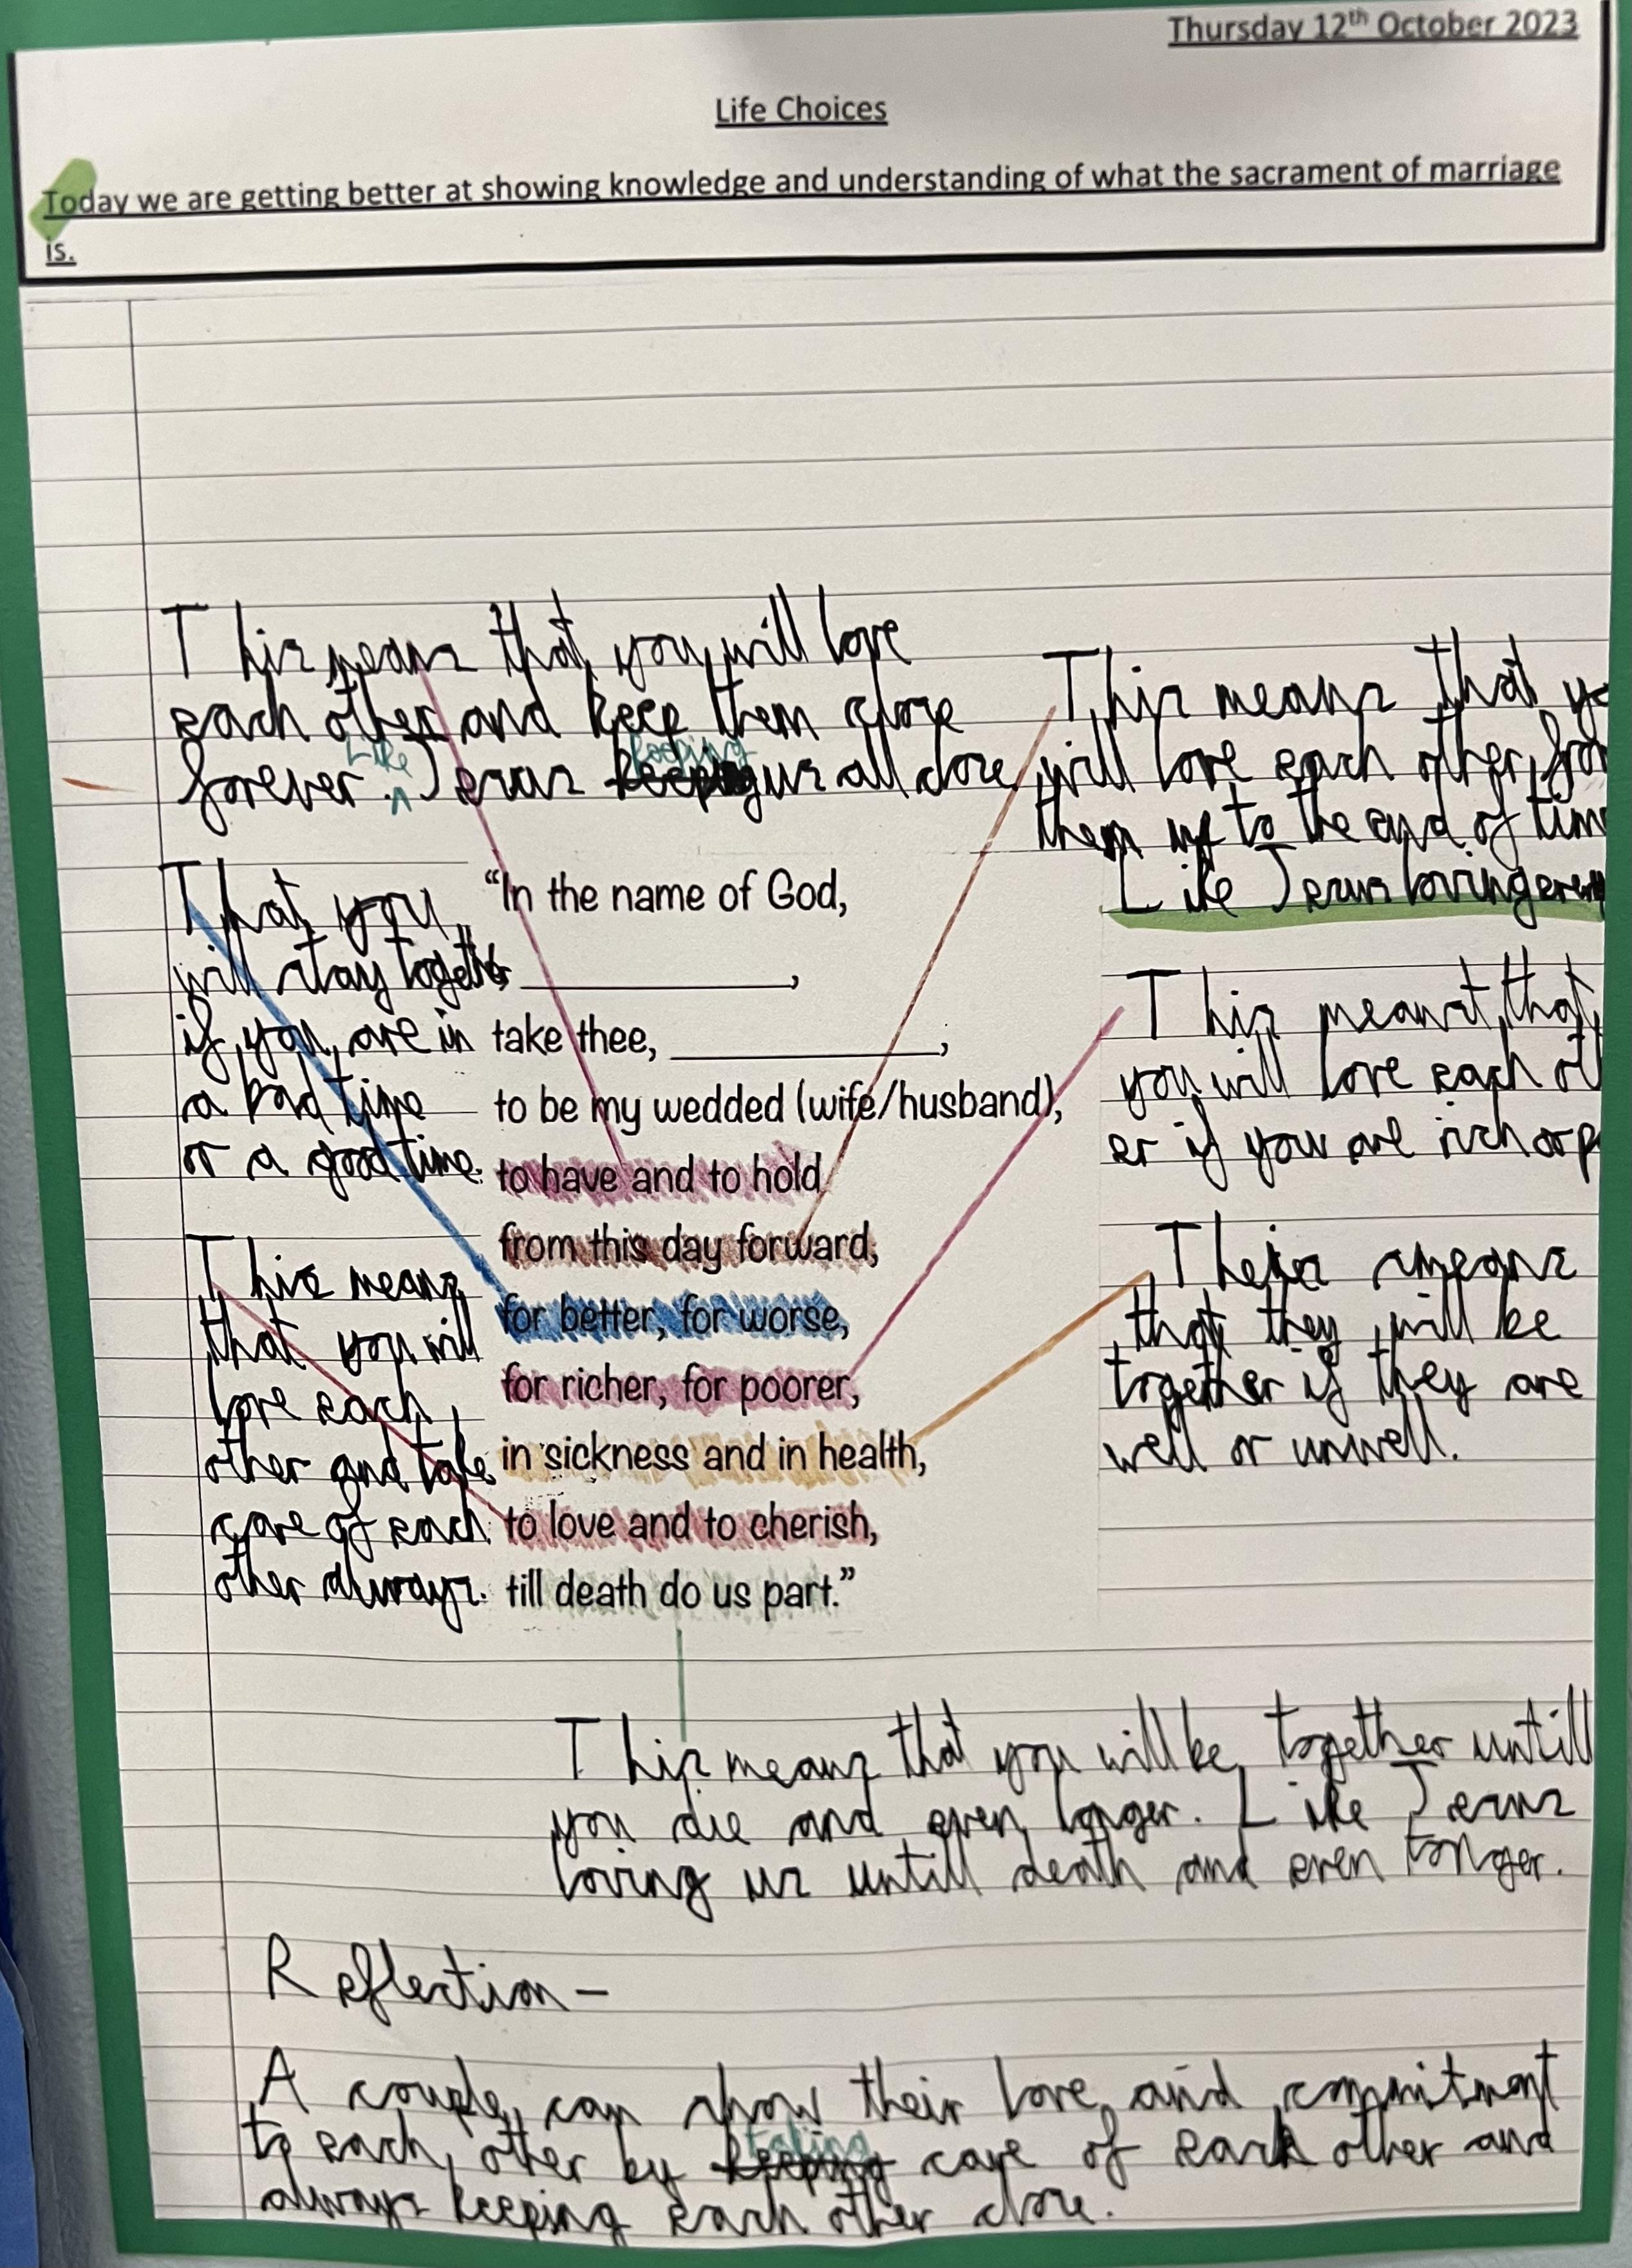 Thursday 12th October 2023
Life Choices
Today we are getting better at showing knowledge and understanding of what the sacrament of marriage
is.
This means that you will love
each other and keep them close
forever. Like Jesus keeping us all close
This means that
will love each other, from
them to the end of time
Like Jesus loving
That you
will stay together
if you are in
a bad time
or a good time.
This means
that you will
love each
other and take
care of each
other always.
“In the name of God,
____________,
take thee, ____________,
to be my wedded (wife/husband),
to have and to hold
from this day forward,
for better, for worse,
for richer, for poorer,
in sickness and in health,
to love and to cherish,
till death do us part.”
This meant that
you will love each oth
er if you are rich or
means
that they will be
together if they are
well or unwell.
This means that you will be together untill
you die and even longer. Like Jesus
loving us untill death and even longer.
Reflection –
A couple can show their love and commitment
to each other by taking care of each other and
always keeping each other close.